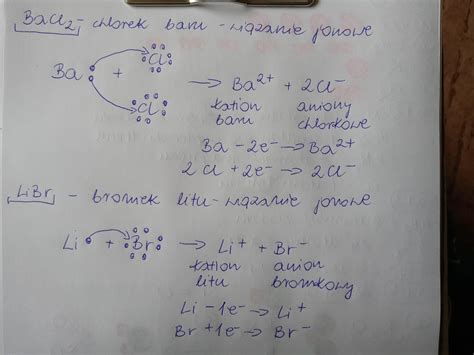 BaCl2 - chlorek baru - wiązanie jonowe
Ba + Cl Cl → Ba2+ + 2Cl-
kation aniony
baru chlorkowe
Ba - 2e- → Ba2+
2Cl + 2e- → 2Cl-
LiBr - bromek litu - wiązanie jonowe
Li + Br → Li+ + Br-
kation anion
litu bromkowy
Li - 1e- → Li+
Br + 1e- → Br-